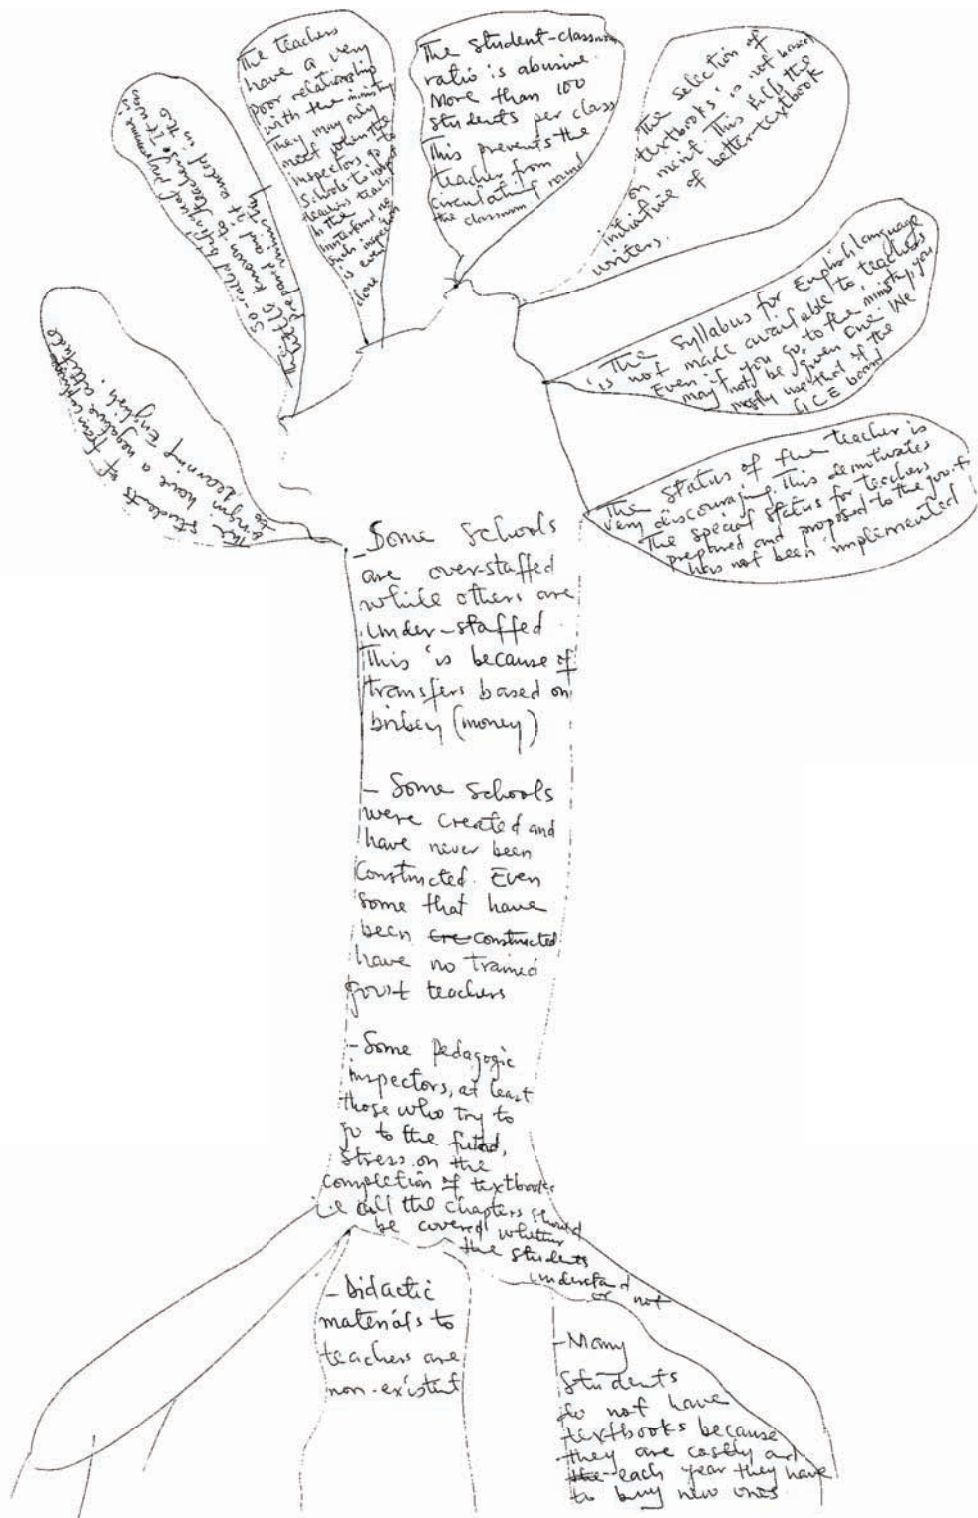 The students of francophone
have a negative attitude
learning English.
So-called bilingual programme is
known to teachers. It was
prepared and it ended in the
ministry
The teachers
have a very
poor relationship
with the ministry
They may only
meet when the
inspectors go to
schools to inspect
teachers teaching
Unfortunately no
such inspection
is even
done
The student-classroom
ratio is abusive.
More than 100
students per class
This prevents the
teacher from
circulating round
the classroom.
The selection of
textbooks is not based
on merit. This kills the
initiative of better-textbook
writers.
The syllabus for English language
is not made available to teachers
Even if you go to the ministry, you
may not be given one. We
mostly use that of the
GCE board
The status of the teacher is
very discouraging. This demotivates
The special status for teachers
prepared and proposed to the gov't
has not been implemented
- Some schools
are over-staffed
while others are
under-staffed
This is because of
transfers based on
bribery (money)
- Some schools
were created and
have never been
constructed. Even
some that have
been constructed
have no trained
gov't teachers
- Some pedagogic
inspectors, at least
those who try to
go to the field,
stress on the
completion of textbooks
i.e all the chapters should
be covered whether
the students
understand
or not
- Didactic
materials to
teachers are
non-existent
- Many
students
do not have
textbooks because
they are costly and
each year they have
to buy new ones